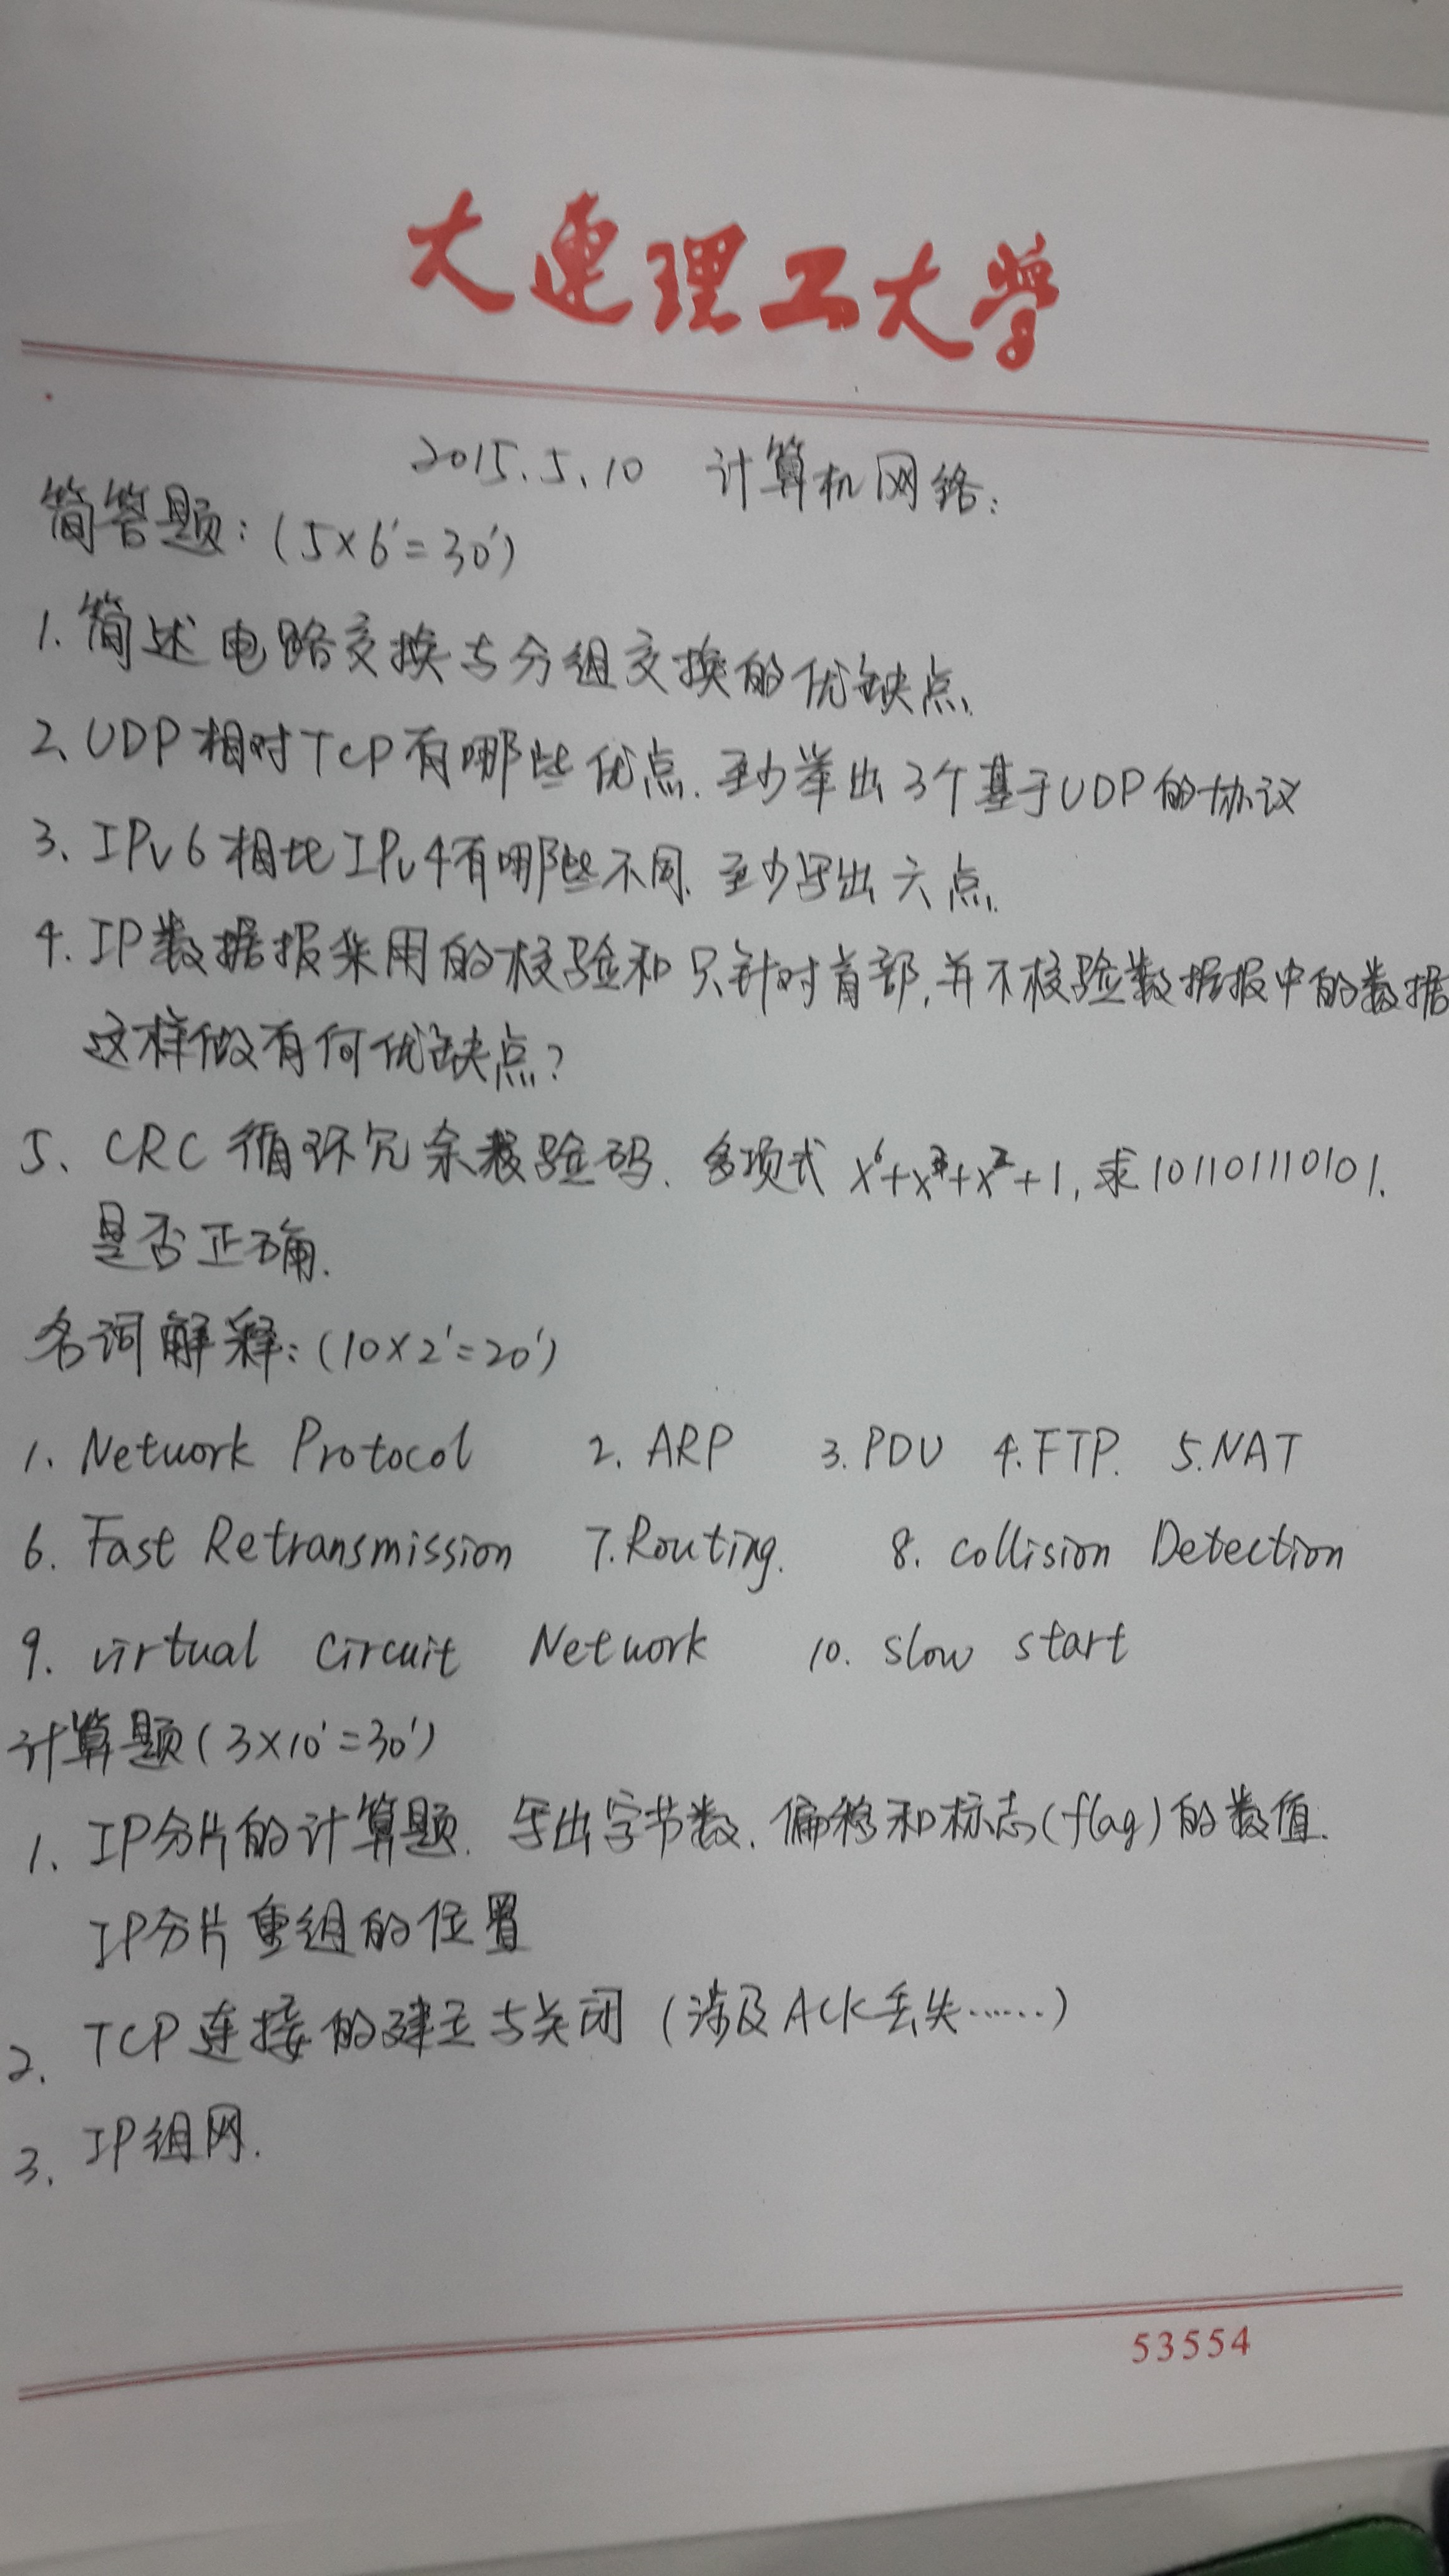 大連理工大学
2015.5.10 计算机网络:
简答题:(5×6'=30')
1.简述电路交换与分组交换的优缺点.
2、UDP相对TCP有哪些优点.至少举出3个基于UDP的协议
3、IPv6相比IPv4有哪些不同.至少写出六点.
4.IP数据报采用的校验和只针对首部,并不校验数据报中的数据
这样做有何优缺点?
5、CRC循环冗余校验码.多项式 x⁶+x³+x²+1,求101101110101.
是否正确.
名词解释:(10×2'=20')
1. Network Protocol 2. ARP 3. PDU 4.FTP. 5.NAT
6. Fast Retransmission 7.Routing. 8. collision Detection
9. virtual Circuit Network 10. slow start
计算题(3×10'=30')
1、IP分片的计算题.写出字节数.偏移和标志(flag)的数值.
IP分片重组的位置
2. TCP连接的建立与关闭(涉及ACK丢失……)
3. IP组网.
53554